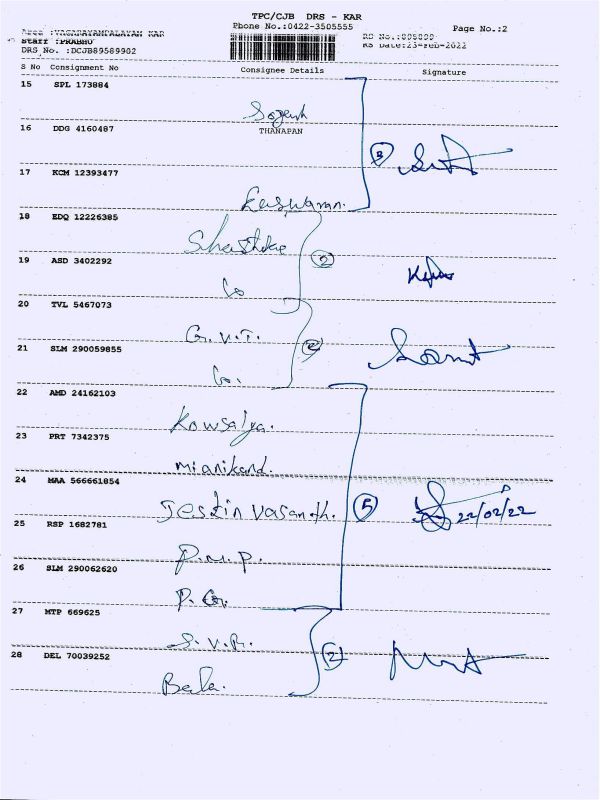 TPC/CJB DRS - KAR
Phone No.:0422-3505555
Page No.:2
Staff :PRABHU
DRS No. :DCJB89589902
RS Date:23-Feb-2022
S No Consignment No Consignee Details Signature
15 SPL 173884
16 DDG 4160487 THANAPAN
17 KCM 12393477
3
Easwaran.
18 EDQ 12226385
19 ASD 3402292
2
20 TVL 5467073
G.V.T.
21 SLM 290059855
2
22 AMD 24162103
Kowsalya.
23 PRT 7342375
Manikand.
24 MAA 566661854
Jestin Vasanth.
5
22/02/22
25 RSP 1682781
P.M.P.
26 SLM 290062620
P.G.
27 MTP 669625
S.V.R.
28 DEL 70039252
2
Bala.